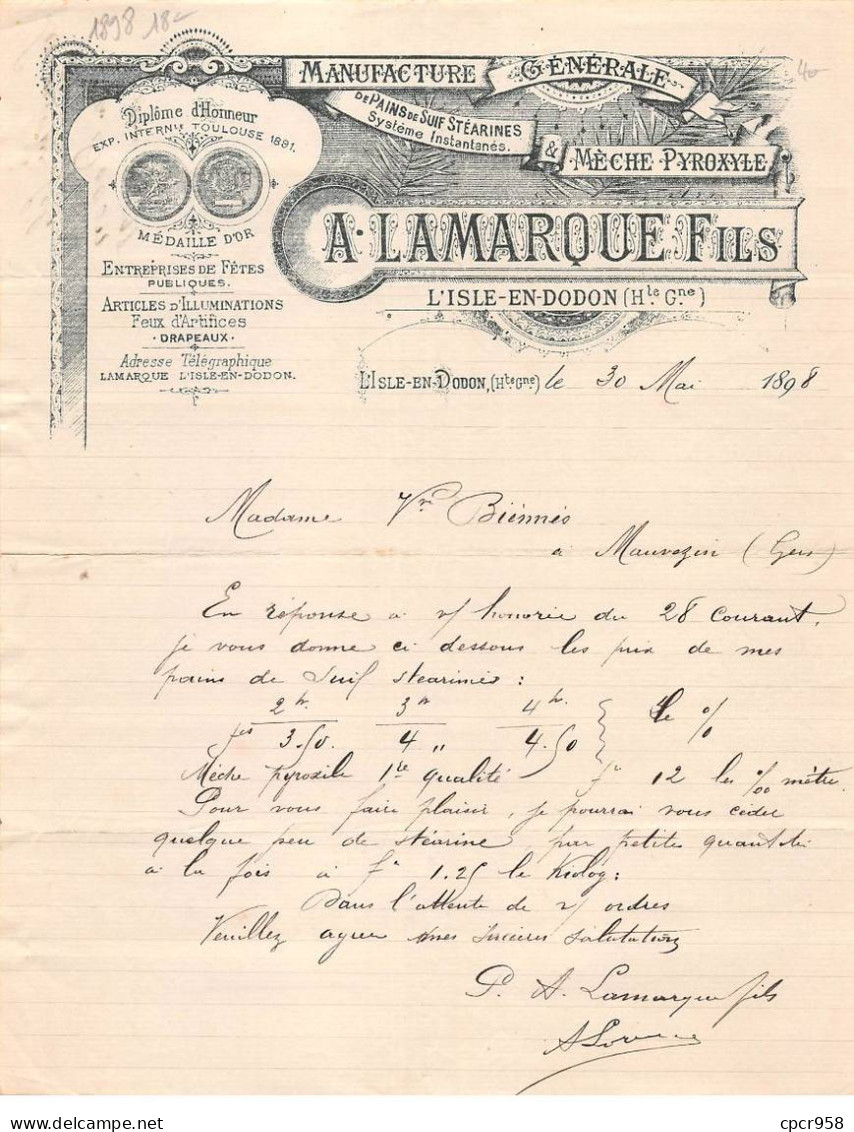 1898 18-
40
MANUFACTURE GÉNÉRALE
DE PAINS DE SUIF STÉARINES
Système Instantanés.
& MÈCHE PYROXYLE
A. LAMARQUE FILS
L'ISLE-EN-DODON (Hte Gne)
Diplôme d'Honneur
EXP. INTERNle TOULOUSE 1891.
MÉDAILLE D'OR
ENTREPRISES DE FÊTES
PUBLIQUES.
ARTICLES D'ILLUMINATIONS
Feux d'Artifices
DRAPEAUX
Adresse Télégraphique
LAMARQUE L'ISLE-EN-DODON.
L'ISLE-EN-DODON, (Hte Gne) le 30 Mai 1898
Madame Vve Biémès
à Mauvezin (Gers)
En réponse à v/ honorée du 28 courant,
je vous donne ci dessous les prix de mes
pains de Suif stéarinés :
2 hr. 3 hr 4 hr. le %
fcs 3.50. 4 „ 4.50
Mèche pyroxile 1re qualité fr 12 les ‰ mètre.
Pour vous faire plaisir, je pourrai vous céder
quelque peu de stéarine, par petites quantités
à la fois à fr 1.25 le Kilog:
Dans l'attente de v/ ordres
Veuillez agréer mes sincères salutations
P. A. Lamarque fils
cpcr958